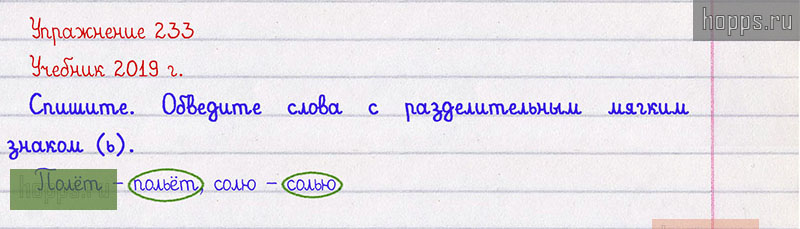 hopps.ru
Упражнение 233
Учебник 2019 г.
Спишите. Обведите слова с разделительным мягким
знаком (ь).
Полёт – польёт, солю – солью
hopps.ru